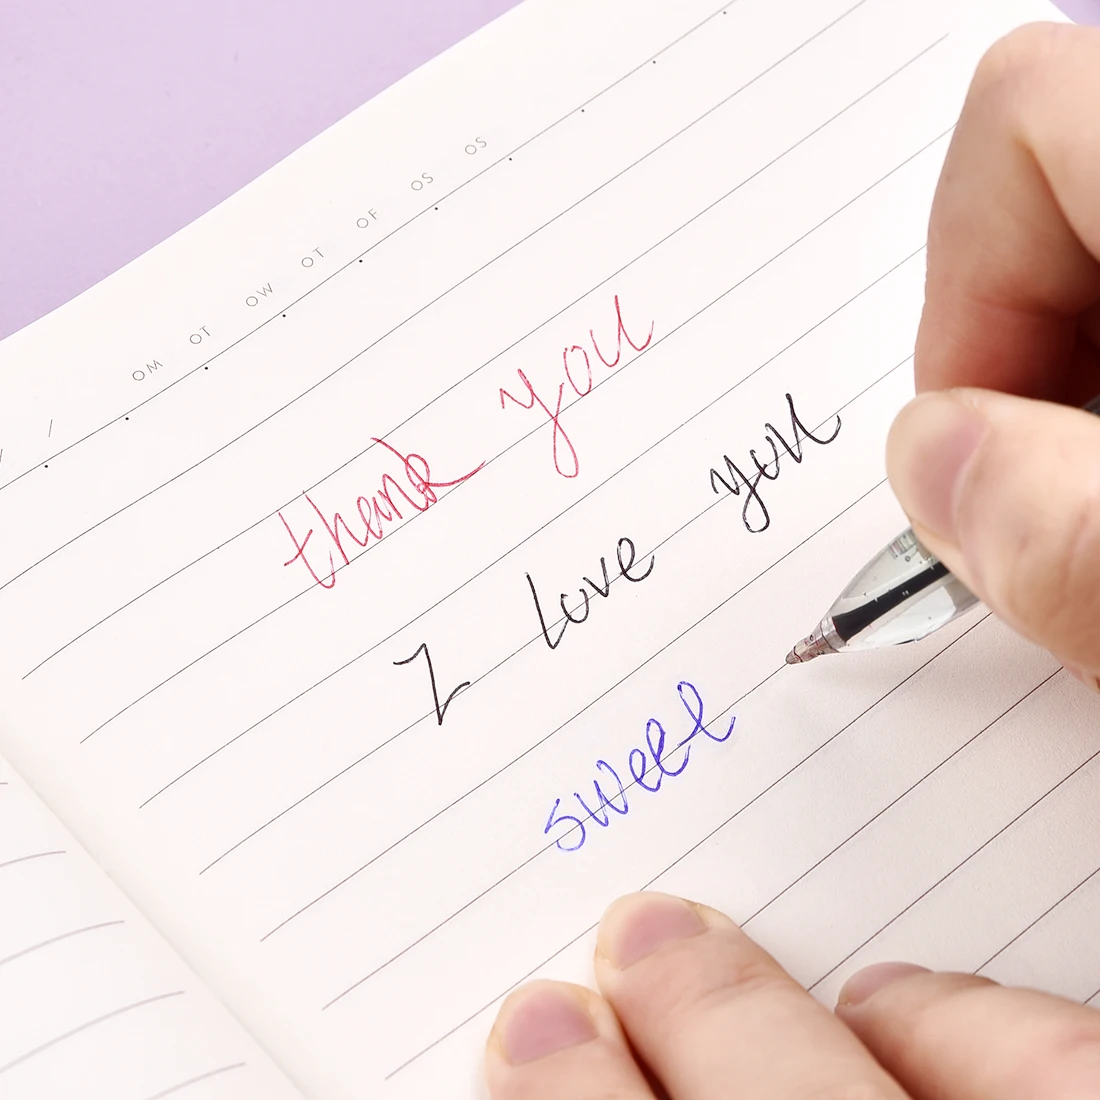 / /
OM OT OW OT OF OS OS
thank you
I love you
sweet